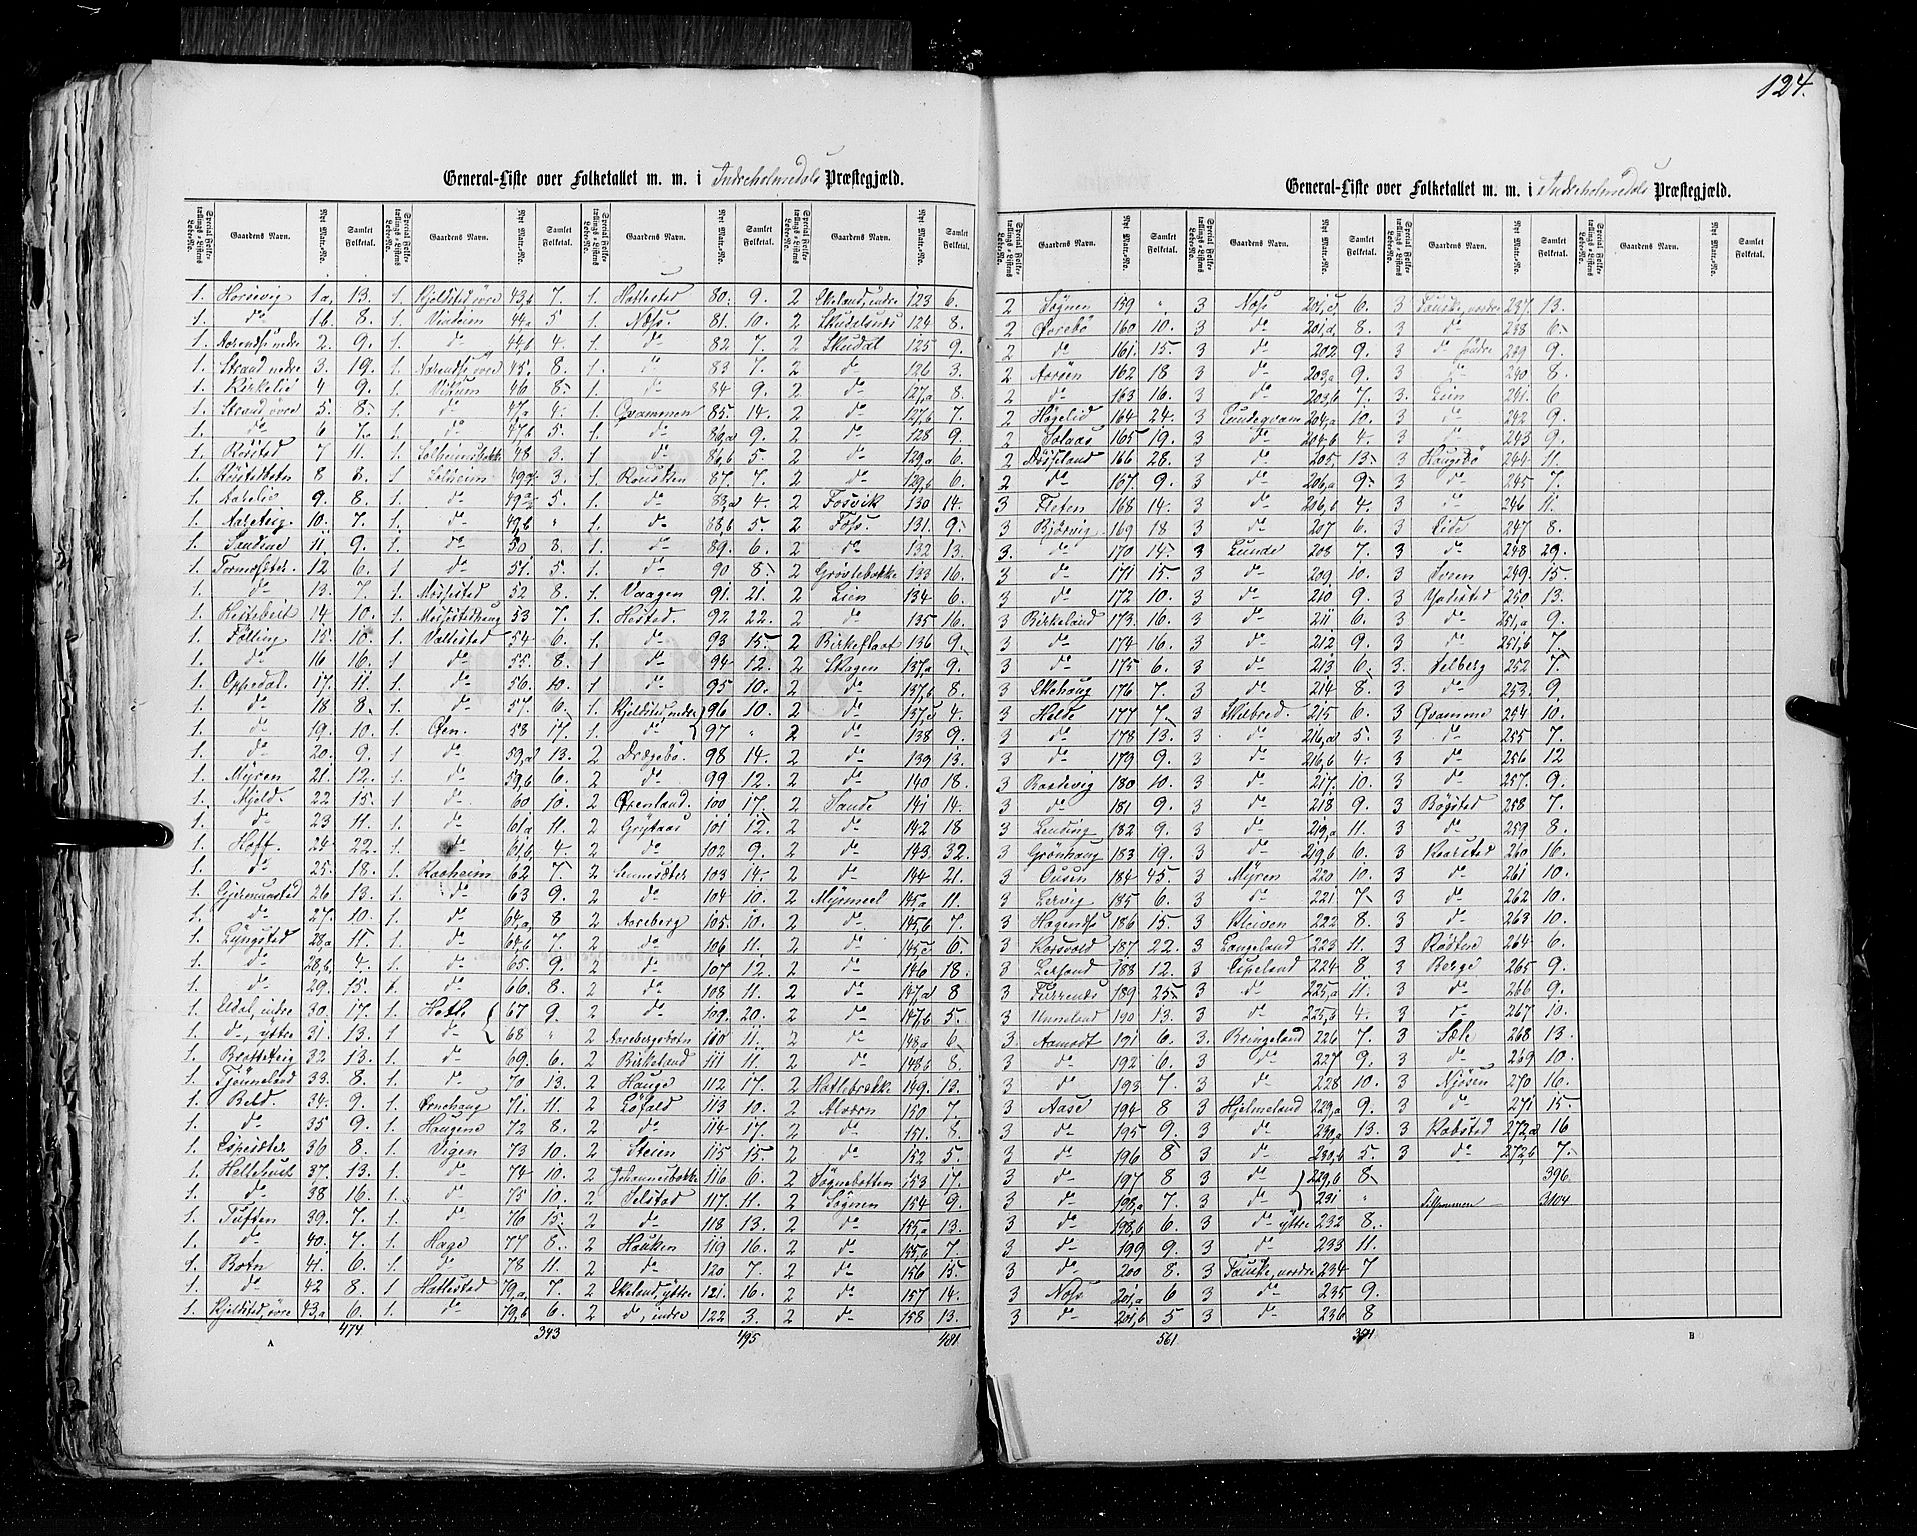 124.
General-Liste over Folketallet m. m. i Indreholmedals Præstegjæld.
Gaardens Navn. Nyt Matr.-No. Samlet Folketal.
1. Horsevig 1a, 13.
1. do 1b 8.
1. 2. 9.
1. Strand nedre 3. 19.
1. Birkelid 4 9.
1. Strand, øvre 5. 8.
1. do 6 7.
1. Røsted 7 11.
1. Røstedbotn 8 8.
1. Aarelid 9. 8.
1. Aareteig. 10. 7.
1. Sandene 11. 9.
1. 12 6.
1. do 13. 7.
1. Hestebeit 14 10.
1. Følling 15. 10.
1. do 16 16.
1. Oppedal. 17. 11.
1. do 18 8.
1. do 19. 10.
1. do 20. 9.
1. Myren 21. 12.
1. Mjeld. 22 15.
1. do 23 11.
1. Hoff. 24 22.
1. do 25. 18.
1. Gjermunstad 26 13.
1. do 27. 10.
1. Lyngstad 28a 11.
1. do 28,b 4.
1. do 29. 15.
1. Eldal, indre 30. 17.
1. do, ytre 31. 13.
1. Bratteteig 32 13.
1. Tjønneland 33. 8.
1. Beld. 34. 9.
1. do 35 9.
1. Espesæter 36 8.
1. 37. 13.
1. do 38 16.
1. Tuften 39. 7.
1. do 40. 7.
1. Botn 41. 6.
1. do 42 8.
1. Kjeldsted, øvre 43,a 6.
474.
1. Kjeldsted øvre 43,b 7.
1. Vinheim 44,a 5
1. do 44,b 4.
1. 45. 8.
1. Vikum 46 8.
1. do 47,a 4.
1. do 47,b 5.
1. Solheimsbakke 48 3.
1. Solheim 3.
1. do 5.
1. do 49,b "
1. do 50 8.
1. do 51. 5.
1. Mosestad 52 8.
1. Mosestadhaug 53 7.
1. Vallestad 54 6.
1. do 55. 8.
1. do 56. 10.
1. do 57. 6.
1. Øen. 58 17.
1. do 59,a 13.
1. do 59,b 6.
1. do 60 10.
1. do 61,a 11.
1. do 61,b 4.
1. Raaheim 62 7.
1. do 63 9.
1. do 64,a 8
1. do 64,b 7.
1. do 65. 9.
1. do 66. 8.
1. Hetle 67 9.
1. do 68 "
1. do 69. 6.
1. do 70 13.
1. Ørnehaug 71. 11.
1. Haugene 72 8.
1. Vigen 73 10.
1. do 74 10.
1. do 75 10.
1. do 76 15.
1. Hage 77 8.
1. do 78 11.
1 Hattestad 79,a 7.
1. do 79,b 6.
343
1. Hattestad 80. 9.
1. Næss. 81. 10.
1. do 82 7.
1. do 83 7.
1. do 84 9.
1. Qvammen 85. 14.
1. do 86,a 9.
1. do 86,b 5.
1. Rousken 87. 7.
1. do 88,a 4.
1. do 88,b 5.
1. do 89. 6.
1. do 90 8.
1. Vaagen 91. 21.
1. Hestad. 92 22.
1. do 93 15.
1. do 94 12.
1. do 95 10.
1. Kjeldsted, nedre 96 10.
1. do 97 "
2 Drægebø. 98 14.
2 do 99 12.
2 Ørenland. 100 17.
2 Grytaas 101 12.
2 do 102 9.
2 103 14.
2 do 104 10.
2 Aareberg 105. 10.
2 do 106 11.
2 do 107. 12.
2 do 108 11.
2 do 109. 20.
2 Aarebergsbotn 110 11.
2 Birkeland 111 11.
2 Hauge 112 17.
2 Løfald 113 10.
2 do 114 17.
2 Steien 115 15.
2 Johannesbakke 116 6.
2 Selstad 117. 11.
2 do 118 13.
2 Hauken 119 16.
2 do 120 7.
2 Ekeland, ytre 121. 16.
2 do, indre 122 3.
495
2 Ekeland, indre 123 6.
2 Skudalsnes 124 8.
2 Skudal 125 9.
2 do 126 3.
2 do 127,a 8.
2 do 127,b 7.
2 do 128 9.
2 do 129,a 6.
2 do 129,b 6.
2 Fossvik 130 14.
2 Foss. 131. 9.
2 do 132 13.
2 Grøvlebakke 133 16.
2 Lien 134 6.
2 do 135 16.
2 Birkeflaat 136 9.
2 Skagen 137,a 9.
2 do 137,b 8.
2 do 137,c 4.
2 do 138 9.
2 do 139 13.
2 do 140 18.
2 Sande 141 14.
2 do 142 18
2 do 143. 32.
2 do 144 21.
2 Myrmeel 145,a 11.
2 do 145,b 7.
2 do 145,c 6.
2 do 146 18.
2 do 147,a 8
2 do 147,b 5.
2 do 148,a 6.
2 do 148,b 8.
2 Hatlebrække 149. 13.
2 Alværn 150 7.
2 do 151. 8.
2 do 152 5.
2 Søgnebotten 153 17.
2 Søgnen 154 9.
2 do 155,a 13.
2 do 155,b 7.
2 do 156 15.
2 do 157 14.
2 do 158 13.
A
General-Liste over Folketallet m. m. i Indreholmedals Præstegjæld.
Gaardens Navn. Nyt Matr.-No. Samlet Folketal.
2 Søgnen 159 "
2 Øvrebø 160 10.
2 do 161. 15.
2 Aarøen 162 18
2 do 163 16.
2 Høgelid 164 24.
2 Solaas 165 19.
2 Døsseland 166 28.
2 do 167. 9.
3 Fleten 168 14.
3 Bjørvig 169 18
3. do 170 14.
3 do 171 15.
3 do 172 10.
3 Birkeland 173. 16.
3 do 174 16.
3 do 175 6.
3 Ekehaug 176 7.
3 Helde 177 7.
3 do 178 13.
3 do 179 9.
3 Bardevig 180 10.
3 do 181 9.
3 Lending 182 9.
3 Grønhaug 183 19.
3 Ousen 184 45.
3 Lervig 185 6.
3 186 15.
3 Korsvold 187 22.
3 188 12.
3 Furrenæs 189 25
3 Unneland 190 13.
3 Aamodt 191 6.
3 do 192 6.
3 do 193 7.
3 Aase 194 8
3 do 195 9.
3 do 196 8
3 do 197 8
3 do 198,a 7.
3 do 198,b 6.
3 do 199 9.
3 do 200 8.
3 Næss 201,a 6
3 do 201,b 5
561
3 Næss 201,c 6.
3 do 201,d 8.
3 do 202 9.
3 do 203,a 9.
3 do 203,b 7.
3 Lundeqvam 204,a 10.
3 do 204,b 4.
3 do 205, 13.
3 do 206,a 9.
3 do 206,b 4.
3 do 207 6.
3 Lunde 208 7.
3 do 209 10.
3 do 210 9.
3 do 211 6.
3 do 212 9.
3 do 213 6.
3 do 214 8.
3 Skilbred. 215 6.
3 do 216,a 5.
3 do 216,b 4.
3 do 217. 10.
3 do 218 9.
3 do 219,a 11.
3 do 219,b 6.
3 Myren 220 10.
3 do 221 7.
3 Kleiven 222 8.
3 Langeland 223 11.
3 Espeland 224 8
3 do 225,a 11.
3 do 225,b 4.
3. Bringeland 226 7.
3 do 227 9.
3 do 228 10.
3 Hjelmeland 229,a 9.
3 do 230,a 13.
3 do 230,b 5.
3 do 229,b 8
3 do 231 "
3 do ytre 232 8.
3 do 233 11.
3 Sauske, nordre 234 7
3 do 235 9.
3 do 236 8
3 Sauske, nordre 237. 13.
3 do 238 6.
3 do søndre 239 9.
3 do 240 8.
3. Lien 241. 6
3 do 242 9.
3 do 243 9.
3 Haugebø 244 11.
3 do 245 7.
3 do 246 11.
3 Eide 247 8.
3 do 248 29.
3 249. 15.
3 Yndestad 250 13.
3 do 251,a 9.
3 do 251,b 7.
3. Solberg 252 7
3 do 253. 9
3 Qvamme 254 10.
3 do 255 7.
3 do 256 12
3 do 257. 9.
3 Bøgstad 258 7.
3 do 259 8.
3 Kaarstad 260 16.
3 do 261 10.
3 do 262 10.
3 do 263 10.
3 Rødten 264 6.
3 Berge 265 9.
3 do 266 9.
3 do 267 10.
3 Sæle 268 13.
3 do 269 10.
3 Njøsen 270 16.
3 do 271 15.
3 Kobstad 272,a 16
3 do 272,b 7.
396.
Tilsammen 3104
B